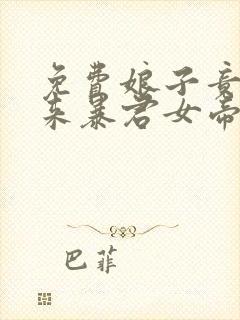 免费娘子竟
来暴君女帝
巴菲